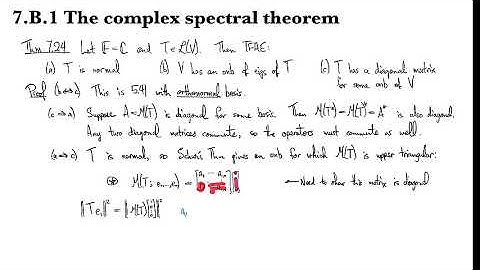 7.B.1 The complex spectral theorem
Thm 7.24 Let F = C and T ∈ L(V). Then TFAE:
(a) T is normal (b) V has an onb of eigs of T (c) T has a diagonal matrix
for some onb of V
Proof (b⇔c) This is 5.41 with orthonormal basis.
(c⇒a) Suppose A = M(T) is diagonal for some basis. Then M(T*) = M(T)* = A* is also diagonal.
Any two diagonal matrices commute, so the operators must commute as well.
(a⇒c) T is normal, so Schur's Thm gives an onb for which M(T) is upper triangular:
⊛ M(T; e₁,...,eₙ) = ← Need to show this matrix is diagonal
‖Te₁‖² = ‖M(T)‖² a₁